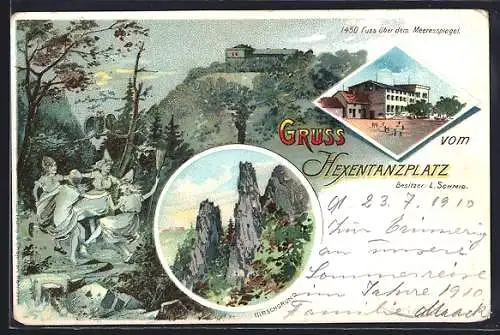 1450 Fuss über dem Meeresspiegel.
GRUSS
vom
HEXENTANZPLATZ
Besitzer: L. Schmid.
23.7.1910
Zur Erinnerung
an unsere
Sommerreise
im Jahre 1910
Familie Maack
HIRSCHGRUND